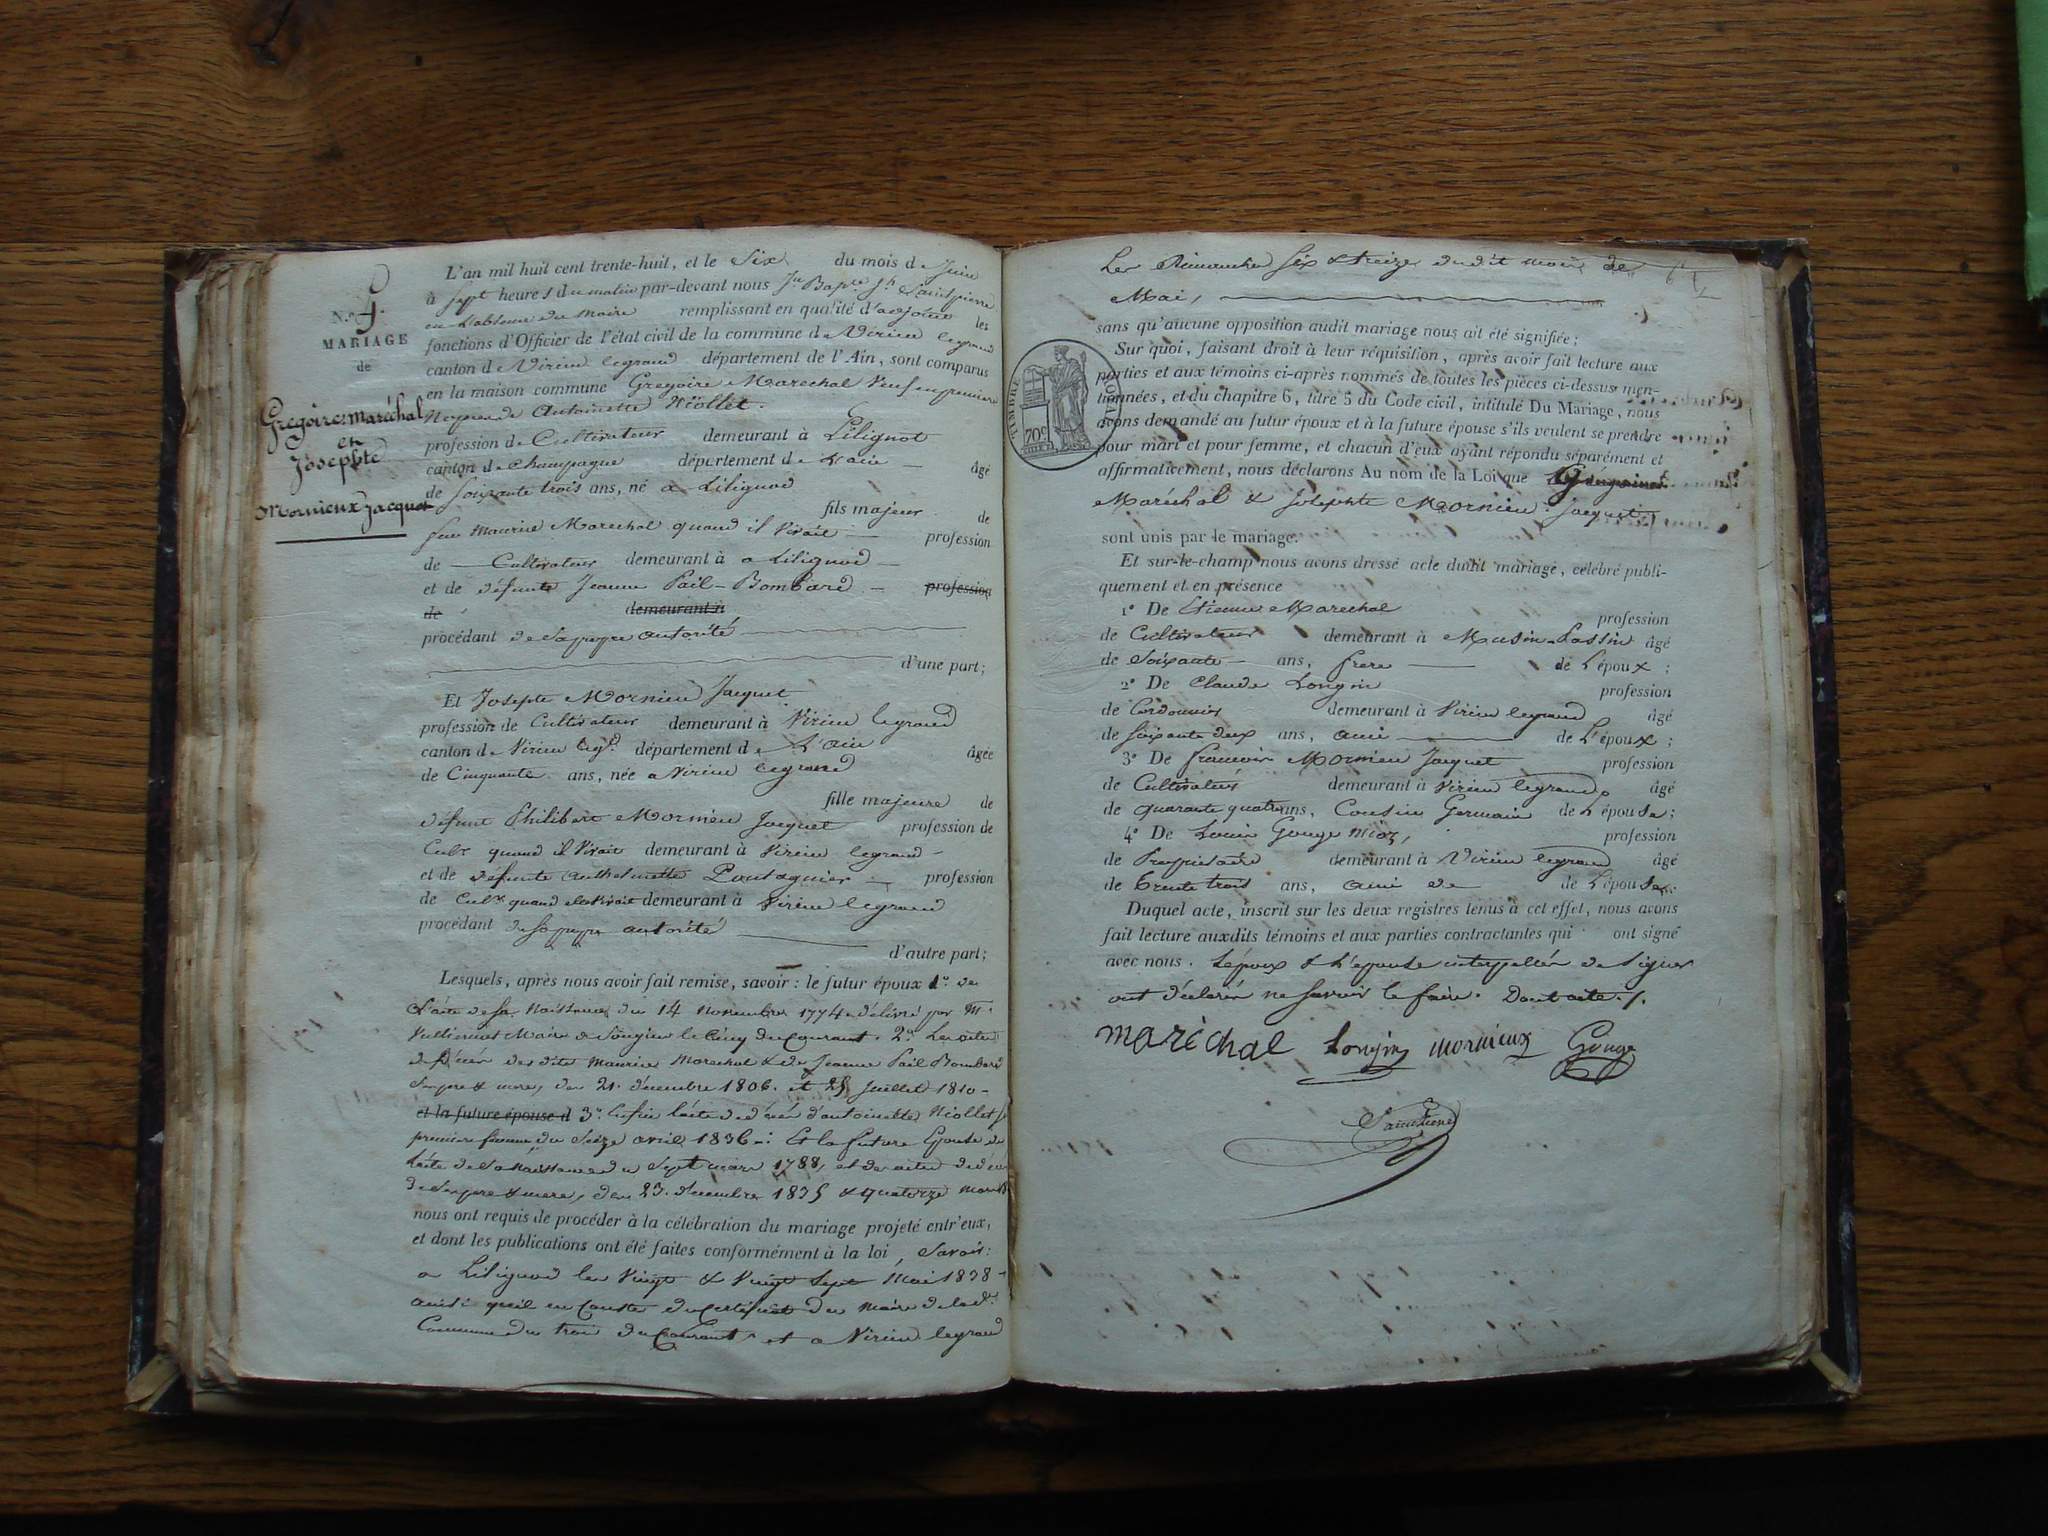 N.º 4.
MARIAGE
de
Gregoire maréchal
et
Josephte
Mornieux Jacquet
L'an mil huit cent trente-huit, et le Six du mois de Juin
à Sept heures du matin par-devant nous Jn Bapte Jh Saintpierre
en L'absence du Maire remplissant en qualité d'adjoint les
fonctions d'Officier de l'état civil de la commune de Virieu legrand
canton de Virieu legrand département de l'Ain, sont comparus
en la maison commune Gregoire Marechal Veuf en premiere
Nopces de Antoinette Niollet.
profession de Cultivateur demeurant à Lilignot
canton de Champagne département de L'ain — âgé
de soixante trois ans, né a Lilignod
fils majeur de
feu Maurice Marechal quand il Vivait — profession
de — Cultivateur demeurant à a Lilignod —
et de défunte Jeanne Pail-Bombard — profession
de demeurant à
procédant de sa propre autorité
d'une part;
Et Josepte Mornieu Jacquet
profession de Cultivateur demeurant à Virieu legrand
canton de Virieu legd. département de L'ain âgée
de Cinquante ans, née a Virieu legrand
fille majeure de
défunt Philibert Mornieu Jacquet profession de
Cultr quand il Vivait demeurant à Virieu legrand
et de défunte Anthelmette Pontagnier — profession
de Cultr quand elle vivait demeurant à Virieu legrand
procédant de sa propre autorité
d'autre part;
Lesquels, après nous avoir fait remise, savoir: le futur époux 1.º de
L'acte de sa Naissance du 14 novembre 1774 délivré par M.
Maire de Songieu le Cinq du Courant. 2.º Les actes
de décès des dits Maurice Marechal & de Jeanne Pail Bombard
ses pere & mere, des 21. décembre 1806. et 25 Juillet 1810 -
et la future épouse d 3.º Enfin l'acte de décès d'antoinette Niollet sa
premiere femme du Seize avril 1836 -: Et la future Epouse de
L'acte de sa Naissance du Sept mars 1788, et des actes de décès
de ses pere & mere, des 23. decembre 1835 & quatorze mars
nous ont requis de procéder à la célébration du mariage projeté entr'eux,
et dont les publications ont été faites conformément à la loi, Savoir:
a Lilignod les Vingt & Vingt Sept Mai 1838 -
ainsi qu'il en Conste du Certificat du Maire de ladte
Commune du trois du Courant, et a Virieu legrand
Les Dimanches six & treize dudit mois de
Mai,
sans qu'aucune opposition audit mariage nous ait été signifiée;
Sur quoi, faisant droit à leur réquisition, après avoir fait lecture aux
parties et aux témoins ci-après nommés de toutes les pièces ci-dessus men-
tionnées, et du chapitre 6, titre 5 du Code civil, intitulé Du Mariage, nous
avons demandé au futur époux et à la future épouse s'ils veulent se prendre
pour mari et pour femme, et chacun d'eux ayant répondu séparément et
affirmativement, nous déclarons Au nom de la Loi que Grégoire
Maréchal & Josephte Mornieu Jacquet
sont unis par le mariage.
Et sur-le-champ nous avons dressé acte dudit mariage, célébré publi-
quement et en présence
1º De Etienne Marechal profession
de Cultivateur demeurant à Musin-Lassin âgé
de Soixante — ans, frere — de L'époux;
2º De Claude Longin profession
de Cordonnier demeurant à Virieu legrand âgé
de soixante deux ans, ami — de L'époux;
3º De francois Mornieu Jacquet profession
de Cultivateur demeurant à Virieu legrand âgé
de quarante quatre ans, Cousin Germain de L'épouse;
4º De Louis Gouge profession
de Proprietaire demeurant à Virieu legrand âgé
de trente trois ans, ami de de L'épouse.
Duquel acte, inscrit sur les deux registres tenus à cet effet, nous avons
fait lecture auxdits témoins et aux parties contractantes qui ont signé
avec nous. L'époux & L'epouse interpellés de signer
ont déclarés ne savoir le faire. Dont acte./.
maréchal Longin mornieux Gouge
Saintpierre
TIMBRE ROYAL
70c